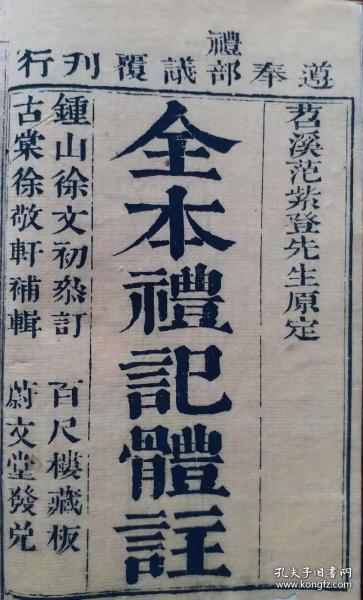 遵奉禮部議覆刊行
苕溪范紫登先生原定
全本禮記體註
鍾山徐文初叅訂 百尺樓藏板
古棠徐敬軒補輯 蔚文堂發兌
孔夫子旧书网
kongfz.com